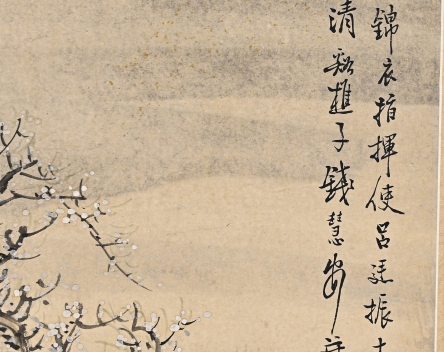 錦衣指揮使呂廷振
清谿樵子錢慧安